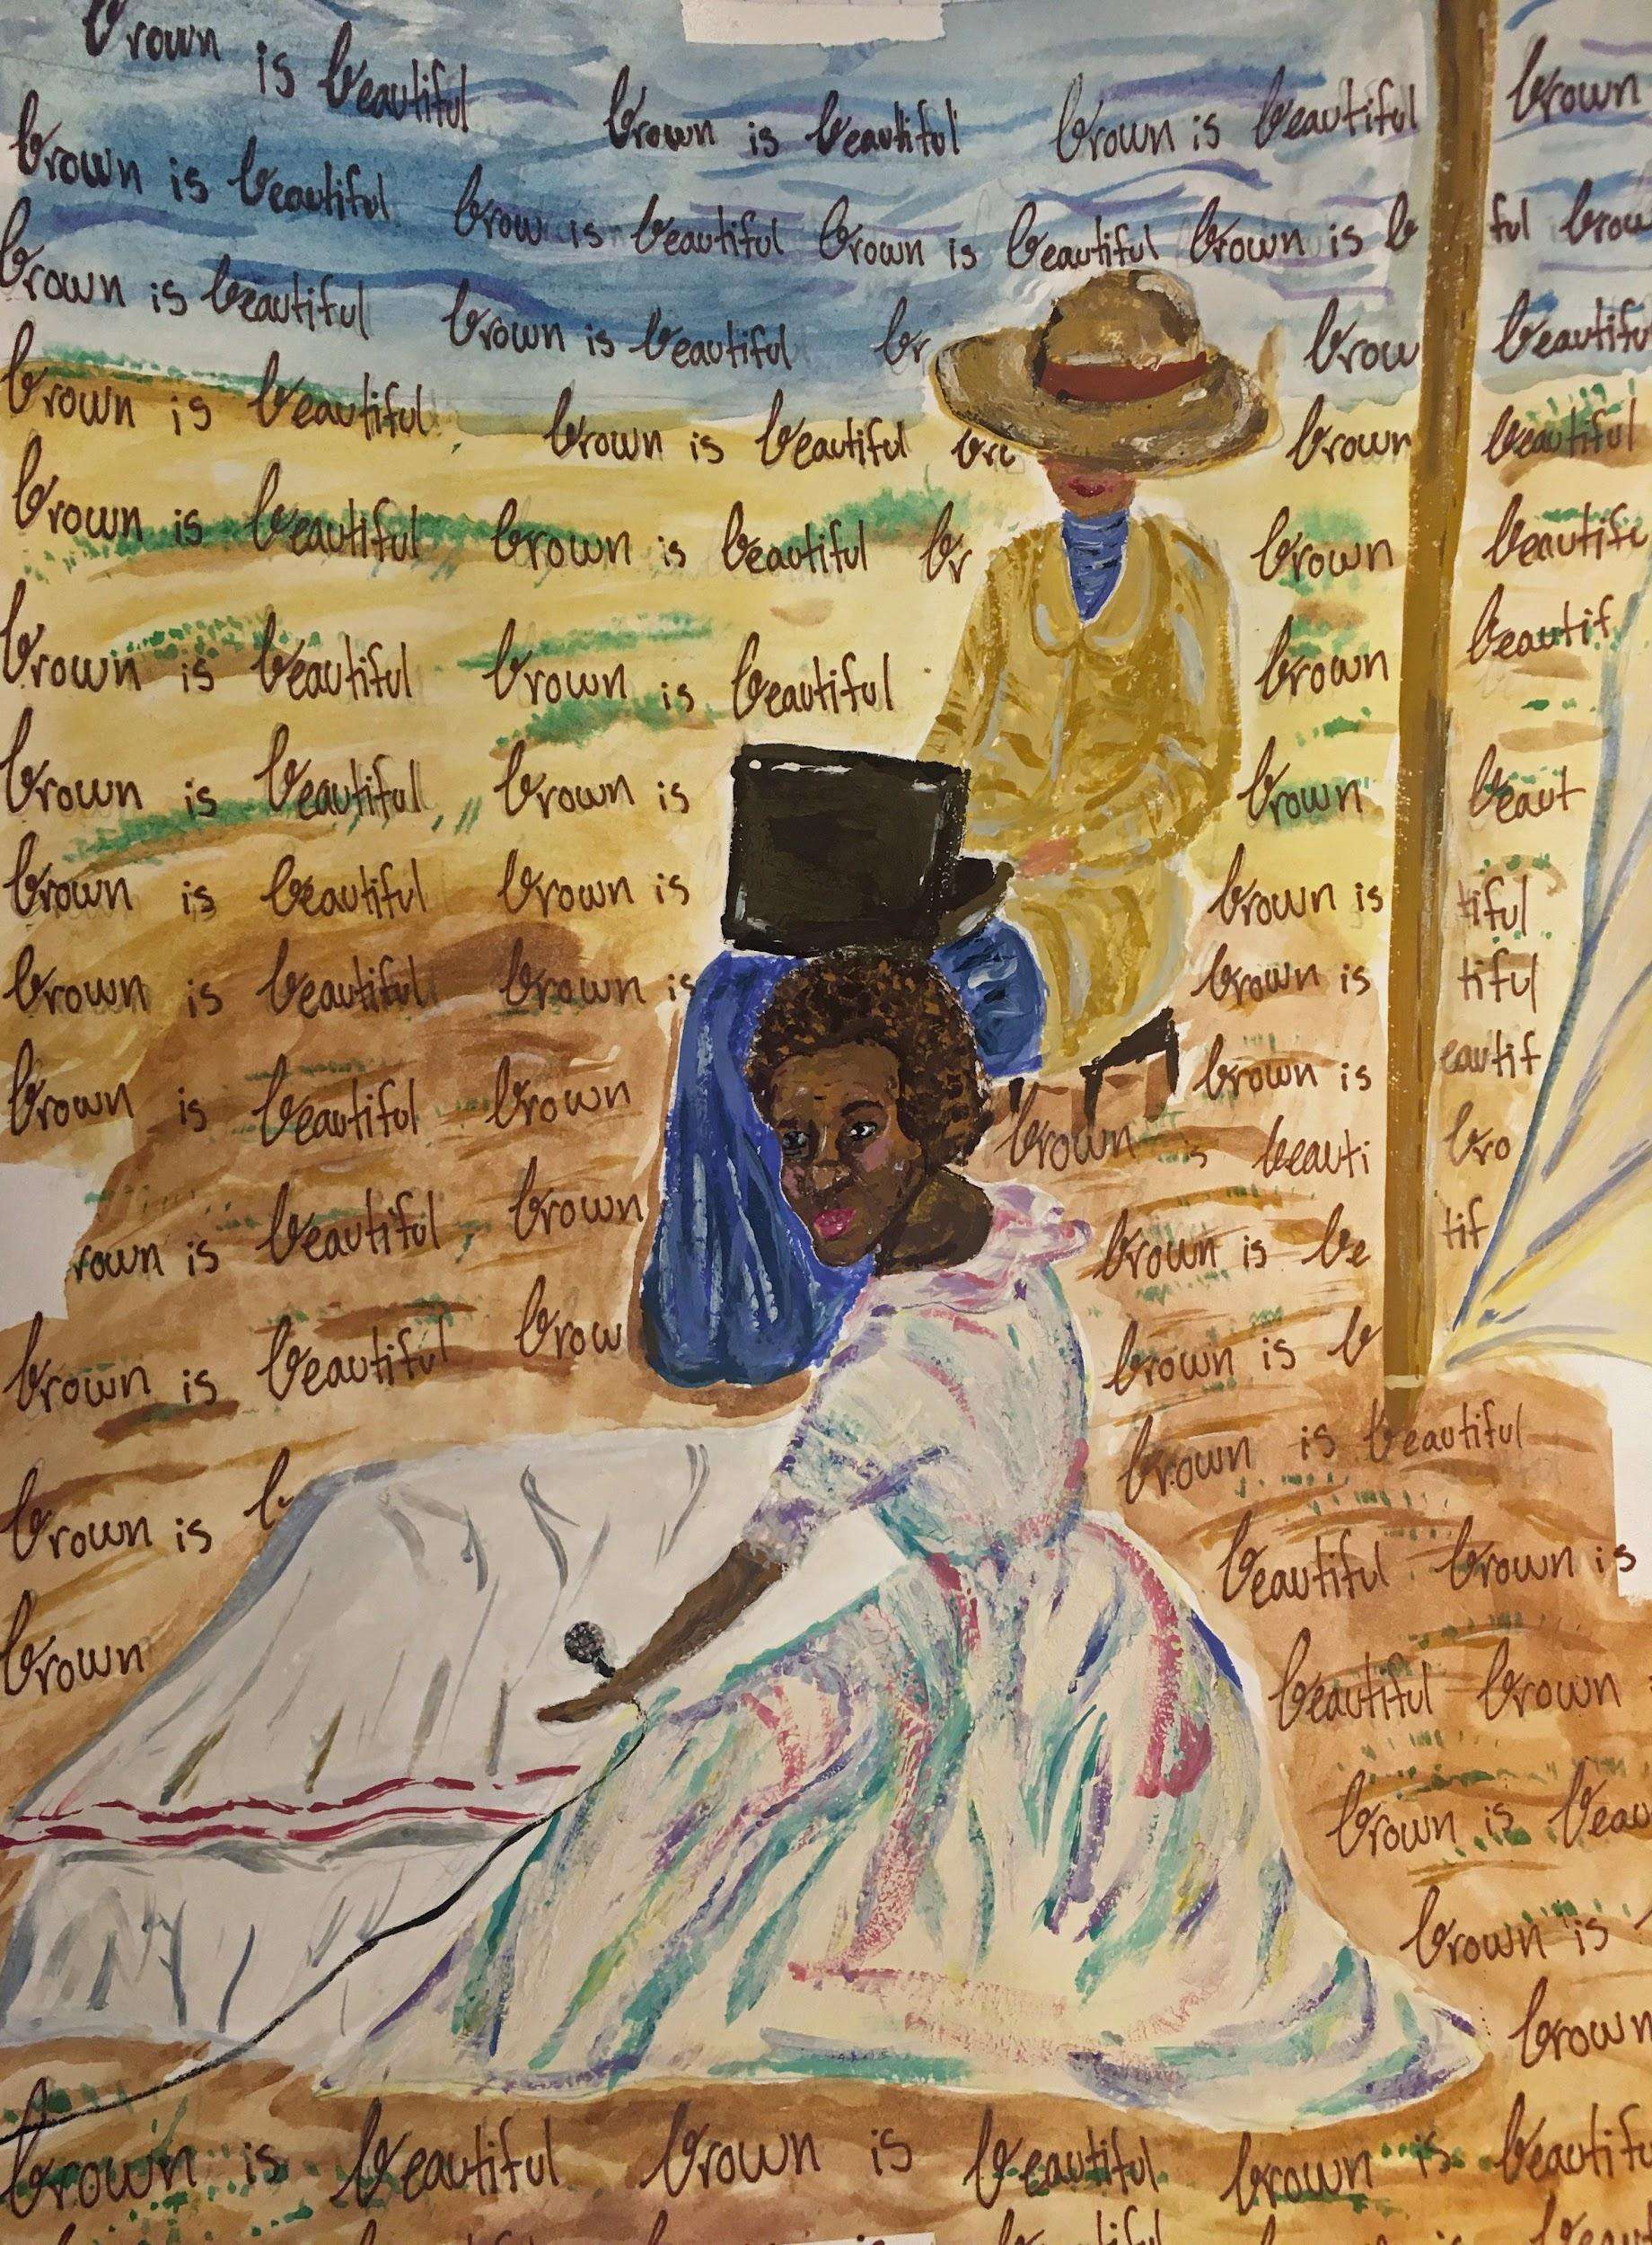 brown is beautiful
brown is beautiful brown is beautiful brown
brown is beautiful
brow is beautiful brown is beautiful brown is b ful brow
brown is beautiful brown is beautiful br brow beautifu
brown is beautiful brown is beautiful bro brown beautiful
brown is beautiful brown is beautiful br brown beautifu
brown is beautiful brown is beautiful brown beautif
brown is beautiful brown is brown beaut
brown is beautiful brown is brown is tiful
brown is beautiful brown is brown is tiful
brown is beautiful brown brown is eautif
brown is beauti bro
rown is beautiful brown brown is be tif
brown is beautiful brow brown is b
brown is b brown is beautiful
beautiful brown is
brown beautiful brown
brown is beau
brown is
brown
brown is beautiful brown is beautiful brown is beautifu